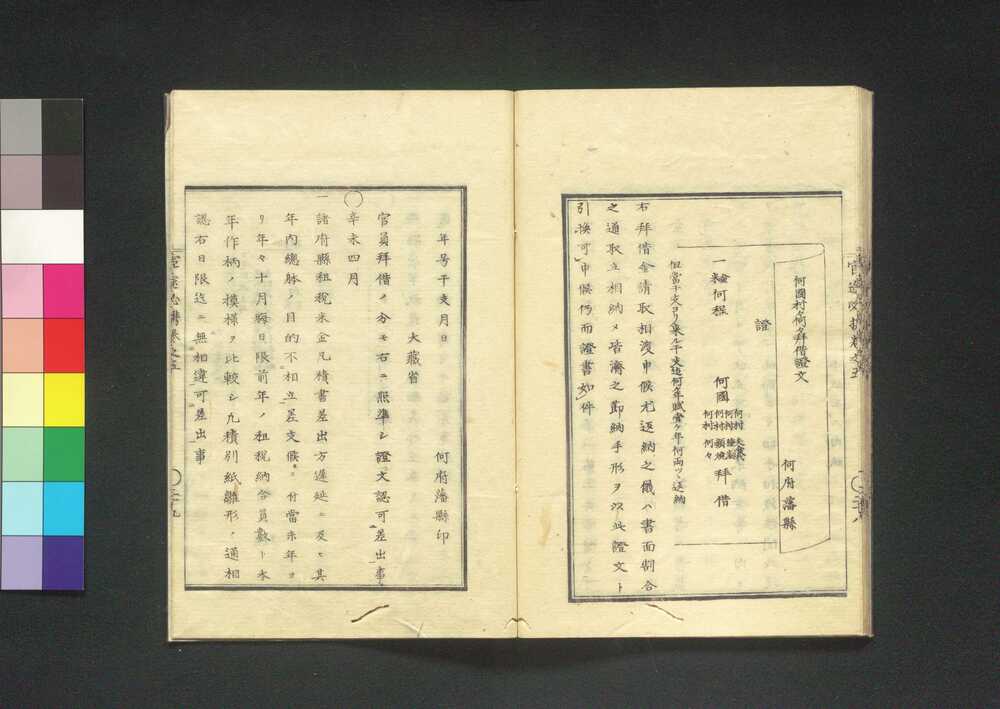 何國村々何々拜借證文
何府藩縣
證
一金何程
米
何國
何村
何村
何村
夫食
種
類燒
何々
拜借
但當干支ヨリ來ル干支迄何ケ年賦壹ケ年何両ツヽ返納
右拜借金請取相渡申候尤返納之儀ハ書面割合
之通取立相納メ皆濟之節納手形ヲ以此證文ト
引換可申候仍而證書如件
年号干支月日
何府藩縣印
大藏省
官員拜借ノ分モ右ニ照準シ證文認可差出事
〇
辛未四月
一諸府縣租税米金凡積書差出方遲延ニ及ヒ其
年内總躰ノ目的不相立差支候ニ付當未年ヨ
リ年々十月晦日限前年ノ租税納合員數ト本
年作柄ノ模樣ヲ比較シ凢積別紙雛形ノ通相
認右日限迄ニ無相違可差出事